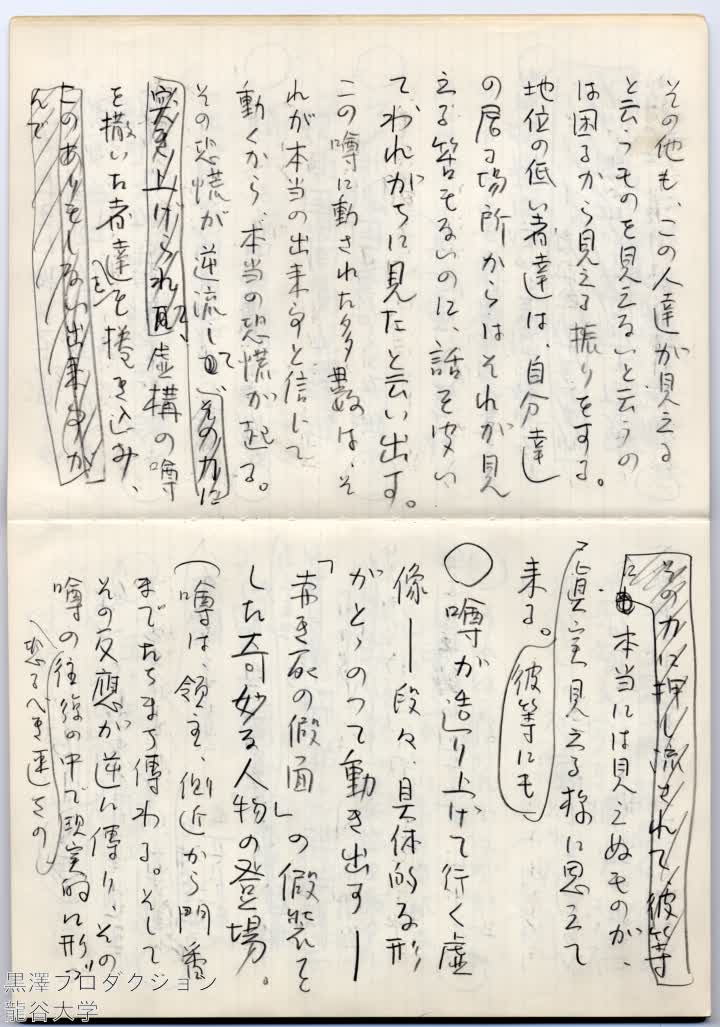 その他も、この人達が見える
と云うものを見えないと云うの
は困るから見える振りをする。
地位の低い者達は、自分達
の居る場所からはそれが見
える筈もないのに、話を聞い
て、われがちに見たと云い出す。
この噂に動された多数は、そ
れが本当の出来事と信じて
動くから、本当の恐慌が起る。
その恐慌が逆流して、その力に
上げられ 虚構の噂
を撒いた者達を捲き込み、
このありもしない出来事が
んで
その力に押し流されて彼等
に 本当には見えぬものが、
真実見える様に思えて
来る。彼等にも
○ 噂が造り上げて行く虚
像ー段々、具体的な形
がとゝのって動き出すー
「赤き死の假面」の假装を
した奇妙な人物の登場。
(噂は、領主、側近から門番
までたちまち傳わる。そして
その反應が逆に傳り、その
噂の往復の中で現実的に形が
恐るべき速さの
黒澤プロダクション
龍谷大学